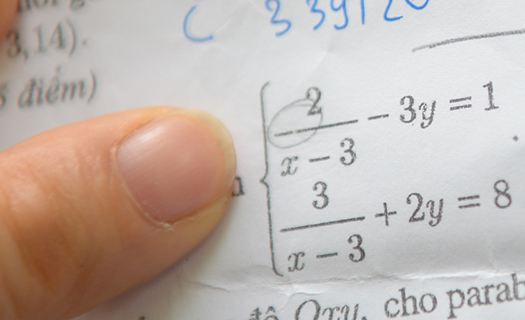 C 339120
3,14).
điểm)
2/(x − 3) − 3y = 1
3/(x − 3) + 2y = 8
độ Oxy, cho parab